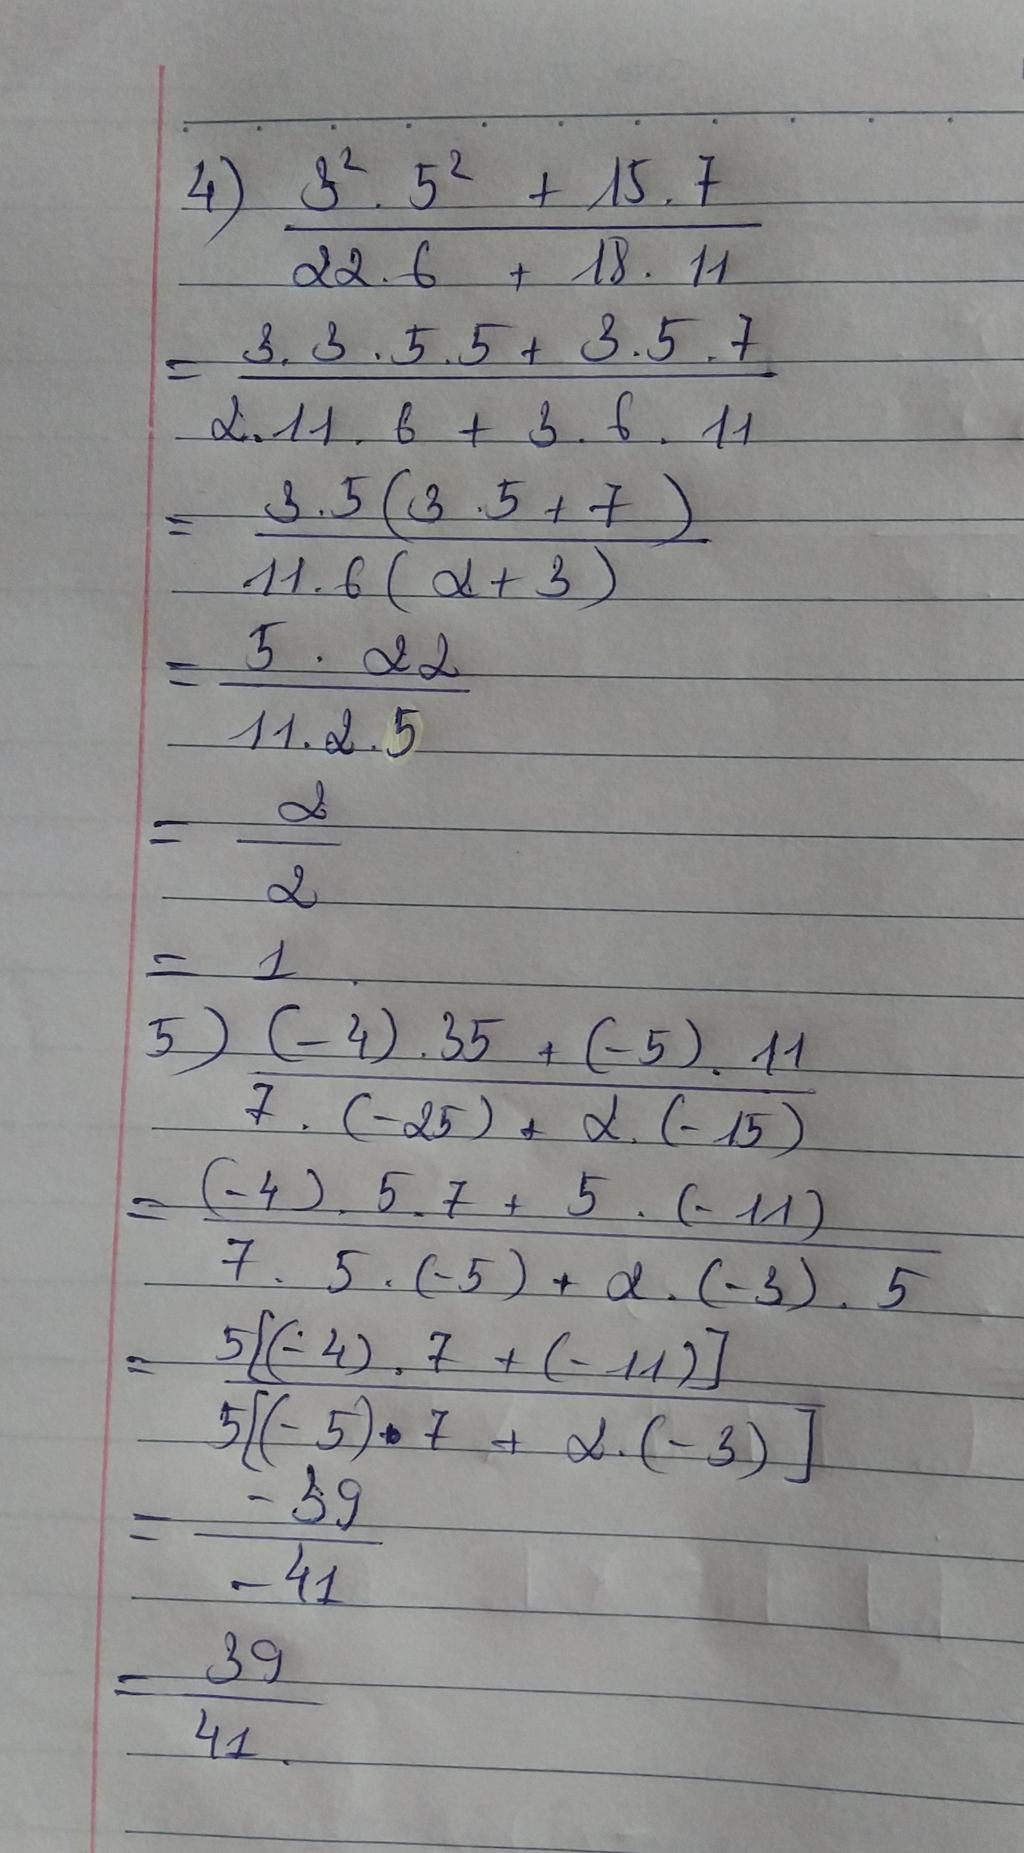 4) 3² . 5² + 15 . 7
22 . 6 + 18 . 11
= 3 . 3 . 5 . 5 + 3 . 5 . 7
2 . 11 . 6 + 3 . 6 . 11
= 3 . 5 ( 3 . 5 + 7 )
11 . 6 ( 2 + 3 )
= 5 . 22
11 . 2 . 5
= 2
2
= 1 .
5) (-4) . 35 + (-5) . 11
7 . (-25) + 2 . (-15)
= (-4) . 5 . 7 + 5 . (-11)
7 . 5 . (-5) + 2 . (-3) . 5
= 5[(-4) . 7 + (-11)]
5[(-5) . 7 + 2 . (-3)]
= -39
-41
= 39
41 .